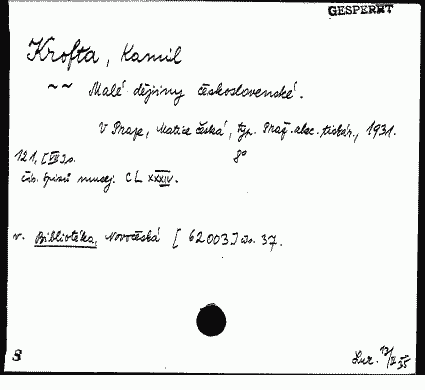 GESPERRT
Krofta, Kamil
~~ Malé dějiny československé.
V Praze, Matice česká, typ. Praž. akc. tiskár., 1931.
8°
121, [VII] s.
čís. spisů musej. CLXXXIV.
v. Bibliotéka, Novočeská [62003] čís. 37.
8
12/V 55